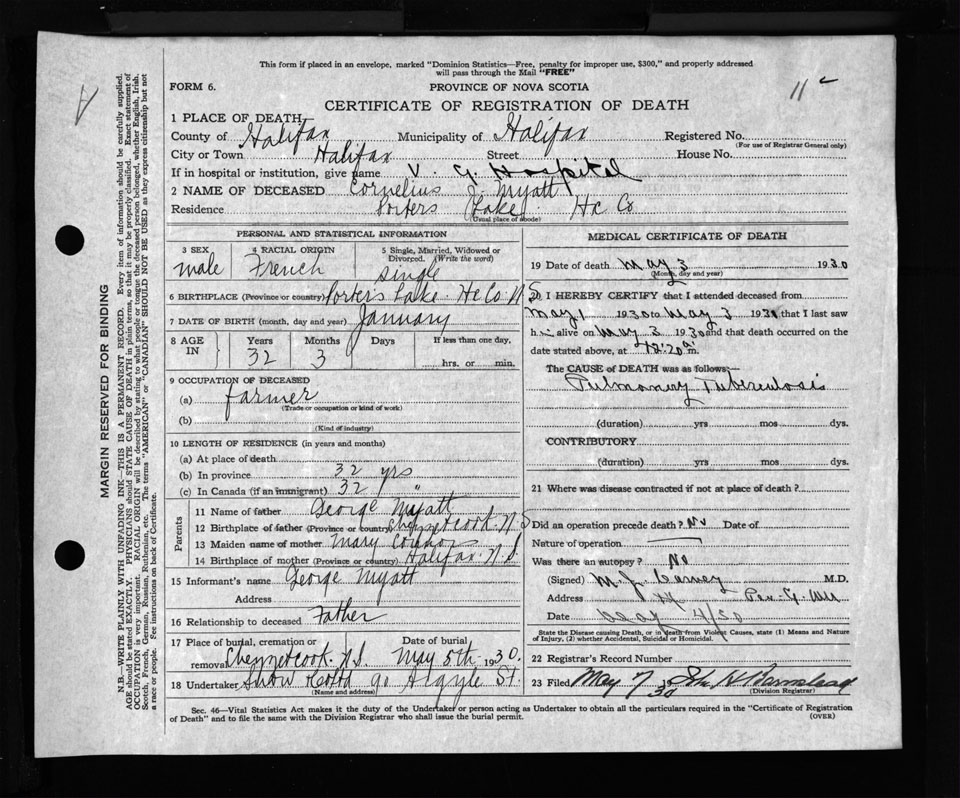 This form if placed in an envelope, marked "Dominion Statistics—Free, penalty for improper use, $300," and properly addressed
will pass through the Mail "FREE"
FORM 6.
PROVINCE OF NOVA SCOTIA
11
CERTIFICATE OF REGISTRATION OF DEATH
1 PLACE OF DEATH
County of Halifax Municipality of Halifax Registered No.
(For use of Registrar General only)
City or Town Halifax Street House No.
If in hospital or institution, give name V. G. Hospital
2 NAME OF DECEASED Cornelius J. Myatt
Residence Porters Lake Hx Co
(Usual place of abode)
PERSONAL AND STATISTICAL INFORMATION
3 SEX male
4 RACIAL ORIGIN French
5 Single, Married, Widowed or Divorced. (Write the word) single
6 BIRTHPLACE (Province or country) Porters Lake Hx Co N S
7 DATE OF BIRTH (month, day and year) January
8 AGE IN
Years 32
Months 3
Days
If less than one day,
hrs. or min.
9 OCCUPATION OF DECEASED
(a) farmer
(Trade or occupation or kind of work)
(b)
(Kind of industry)
10 LENGTH OF RESIDENCE (in years and months)
(a) At place of death
(b) In province 32 yrs
(c) In Canada (if an immigrant) 32 "
Parents
11 Name of father George Myatt
12 Birthplace of father (Province or country) Chezzetcook N S
13 Maiden name of mother Mary Connors
14 Birthplace of mother (Province or country) Halifax N.S.
15 Informant's name George Myatt
Address
16 Relationship to deceased Father
17 Place of burial, cremation or removal Chezzetcook N.S.
Date of burial May 5th 1930.
18 Undertaker Snow 90 Argyle St.
(Name and address)
MEDICAL CERTIFICATE OF DEATH
19 Date of death May 3 1930
(Month, day and year)
20 I HEREBY CERTIFY that I attended deceased from
May 1 1930 to May 3 1930 that I last saw
h alive on May 3 1930 and that death occurred on
date stated above, at 12:20 a m.
The CAUSE of DEATH was as follows:
Pulmonary Tuberculosis
(duration) yrs mos dys.
CONTRIBUTORY
(duration) yrs mos dys.
21 Where was disease contracted if not at place of death?
Did an operation precede death? No Date of
Nature of operation
Was there an autopsy? No
(Signed) M. J. Carney M.D.
Address
Date 4/30
State the Disease causing Death, or in death from Violent Causes, state (1) Means and Nature
of Injury, (2) whether Accidental, Suicidal or Homicidal.
22 Registrar's Record Number
23 Filed May 7 30 John H Barnstead
(Division Registrar)
Sec. 46—Vital Statistics Act makes it the duty of the Undertaker or person acting as Undertaker to obtain all the particulars required in the "Certificate of Registration
of Death" and to file the same with the Division Registrar who shall issue the burial permit.
(OVER)
MARGIN RESERVED FOR BINDING
N.B.—WRITE PLAINLY WITH UNFADING INK—THIS IS A PERMANENT RECORD. Every item of information should be carefully supplied.
AGE should be stated EXACTLY. PHYSICIANS should STATE CAUSE OF DEATH in plain terms, so that it may be properly classified. Exact statement of
OCCUPATION is very important. RACIAL ORIGIN will be described by stating to what people or tongue the deceased person belonged, whether English, Irish,
Scotch, French, German, Russian, Ruthenian, etc. The terms "AMERICAN" or "CANADIAN" SHOULD NOT BE USED as they express citizenship but not
a race or people. Fee instructions on back of Certificate.